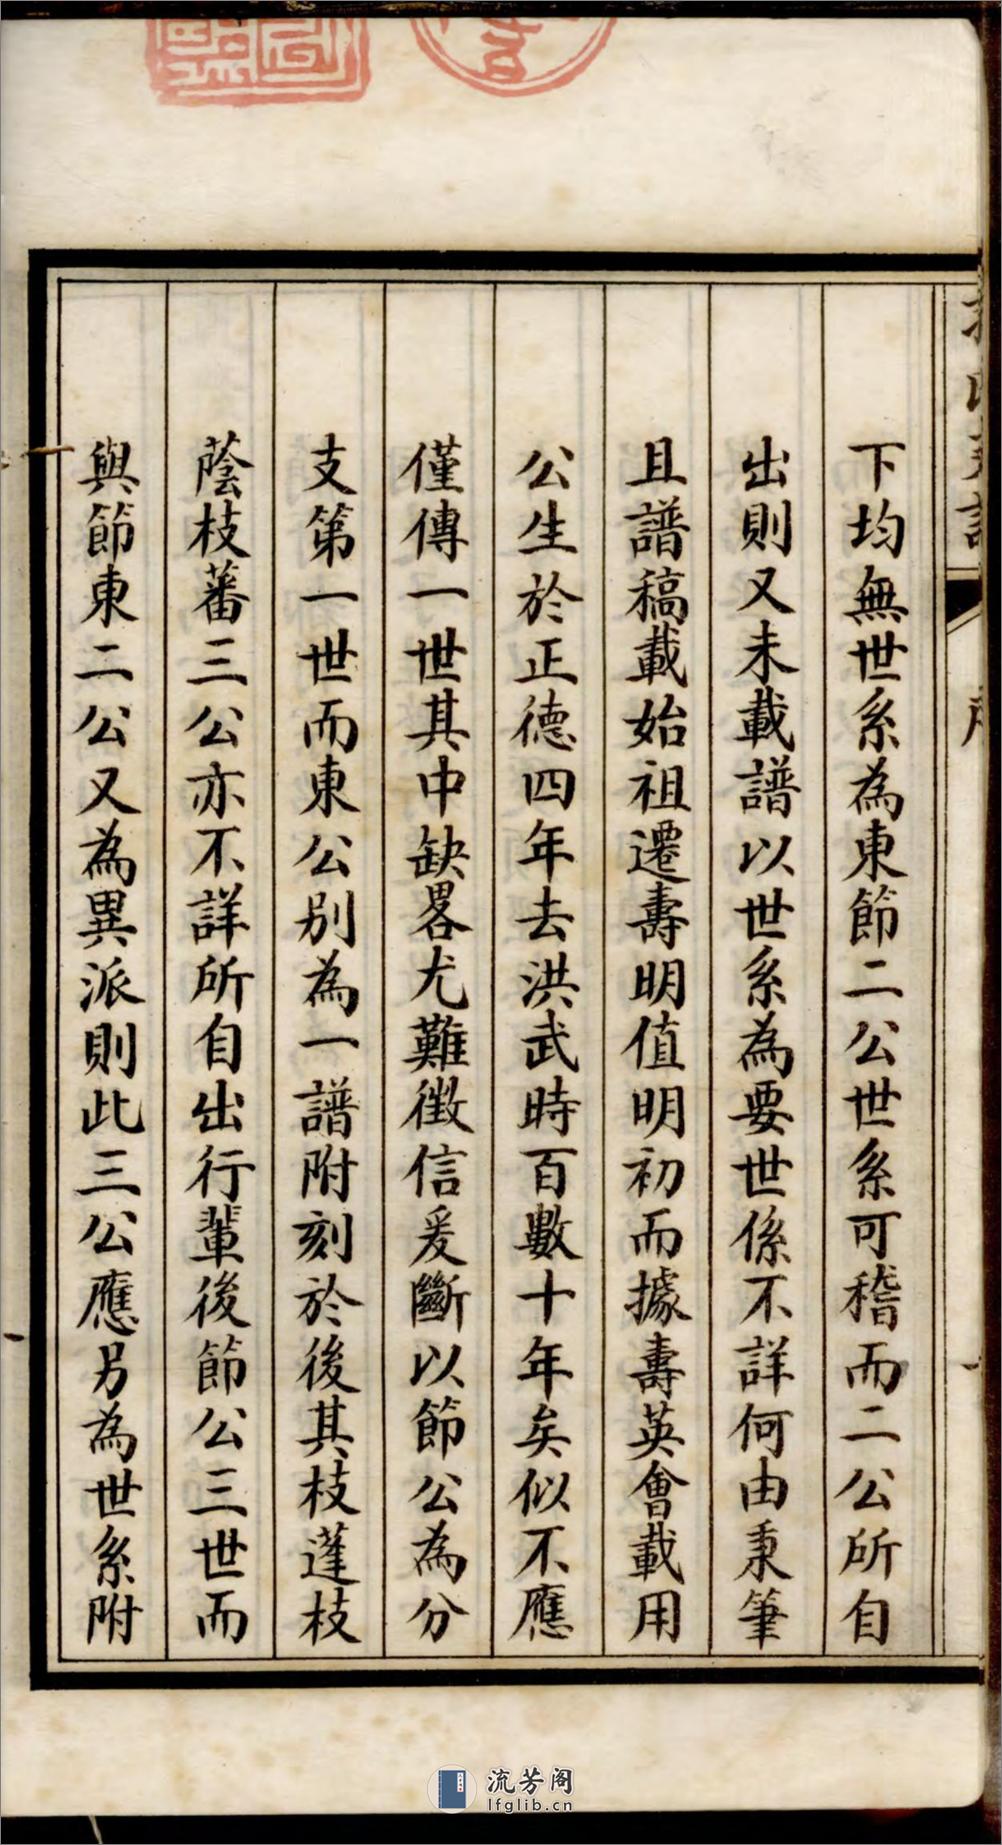 下均無世系為東節二公世系可稽而二公所自
出則又未載譜以世系為要世係不詳何由秉筆
且譜稿載始祖遷壽明值明初而據壽英會載用
公生於正德四年去洪武時百數十年矣似不應
僅傳一世其中缺畧尤難徵信爰斷以節公為分
支第一世而東公別為一譜附刻於後其枝蓬枝
蔭枝蕃三公亦不詳所自出行輩後節公三世而
與節東二公又為異派則此三公應另為世系附
流芳阁
lfglib.cn